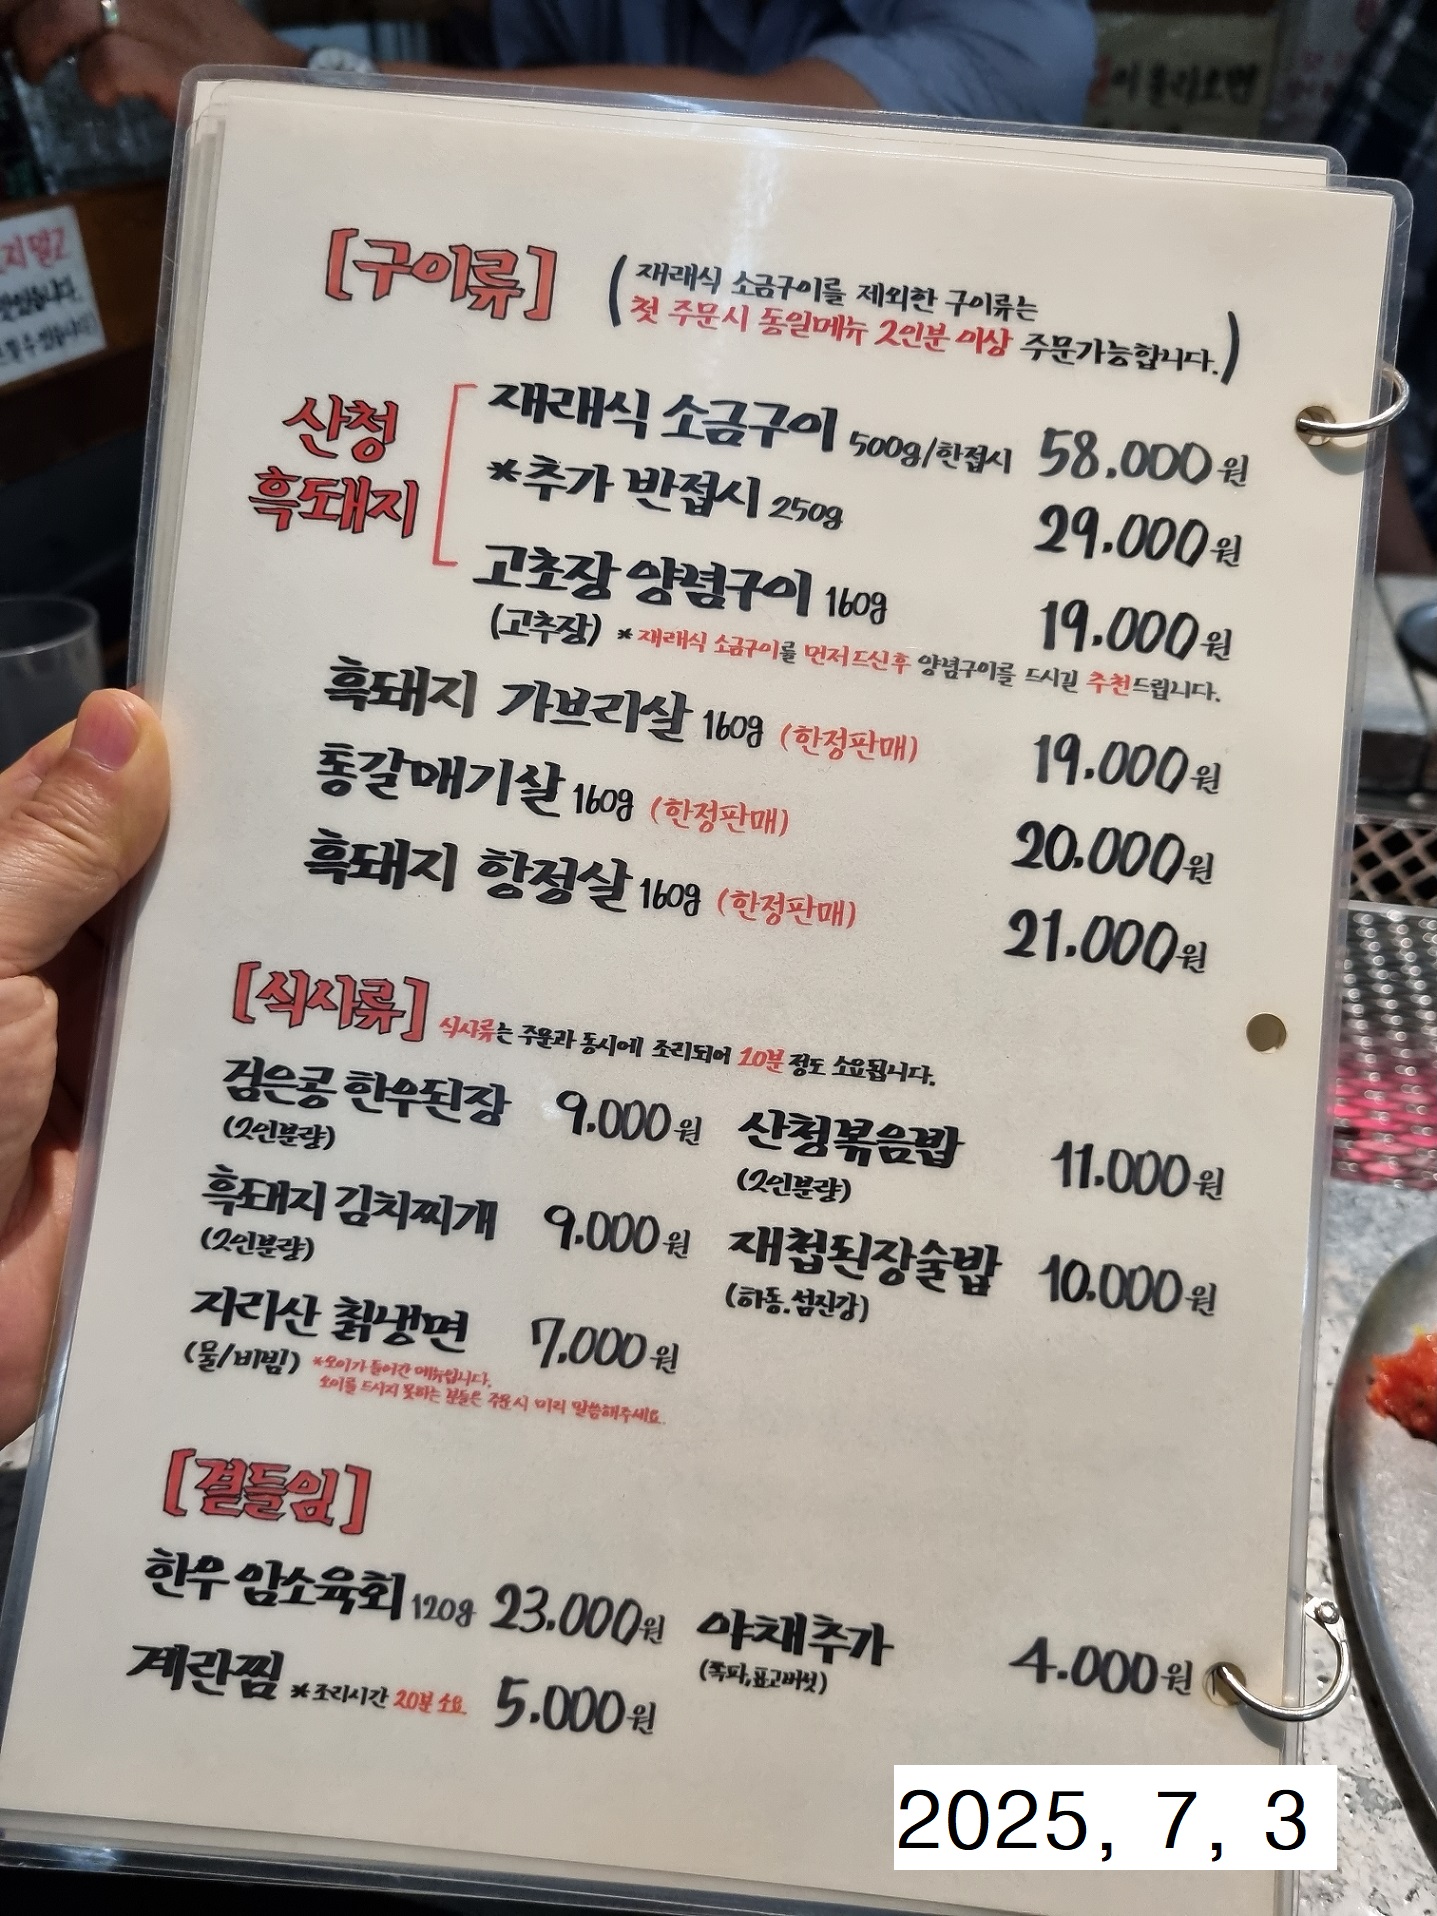 이 올라오면
[구이류]
(재래식 소금구이를 제외한 구이류는
첫 주문시 동일메뉴 2인분 이상 주문가능합니다.)
산청
흑돼지
재래식 소금구이 500g/한접시 58.000원
*추가 반접시 250g 29.000원
고초장 양념구이 160g 19.000원
(고추장) *재래식 소금구이를 먼저드신후 양념구이를 드시길 추천드립니다.
흑돼지 가브리살 160g (한정판매) 19.000원
통갈매기살 160g (한정판매) 20.000원
흑돼지 항정살 160g (한정판매) 21.000원
[식사류] 식사류는 주문과 동시에 조리되어 10분 정도 소요됩니다.
검은콩 한우된장 9.000원
(2인분량)
산청볶음밥 11.000원
(2인분량)
흑돼지 김치찌개 9.000원
(2인분량)
재첩된장술밥 10.000원
(하동.섬진강)
지리산 칡냉면 7.000원
(물/비빔) *오이가 들어간 메뉴입니다.
오이를 드시지 못하는 분들은 주문시 미리 말씀해주세요.
[곁들임]
한우 암소육회 120g 23.000원
야채추가 4.000원
(쪽파,표고버섯)
계란찜 *조리시간 20분 소요 5.000원
2025, 7, 3